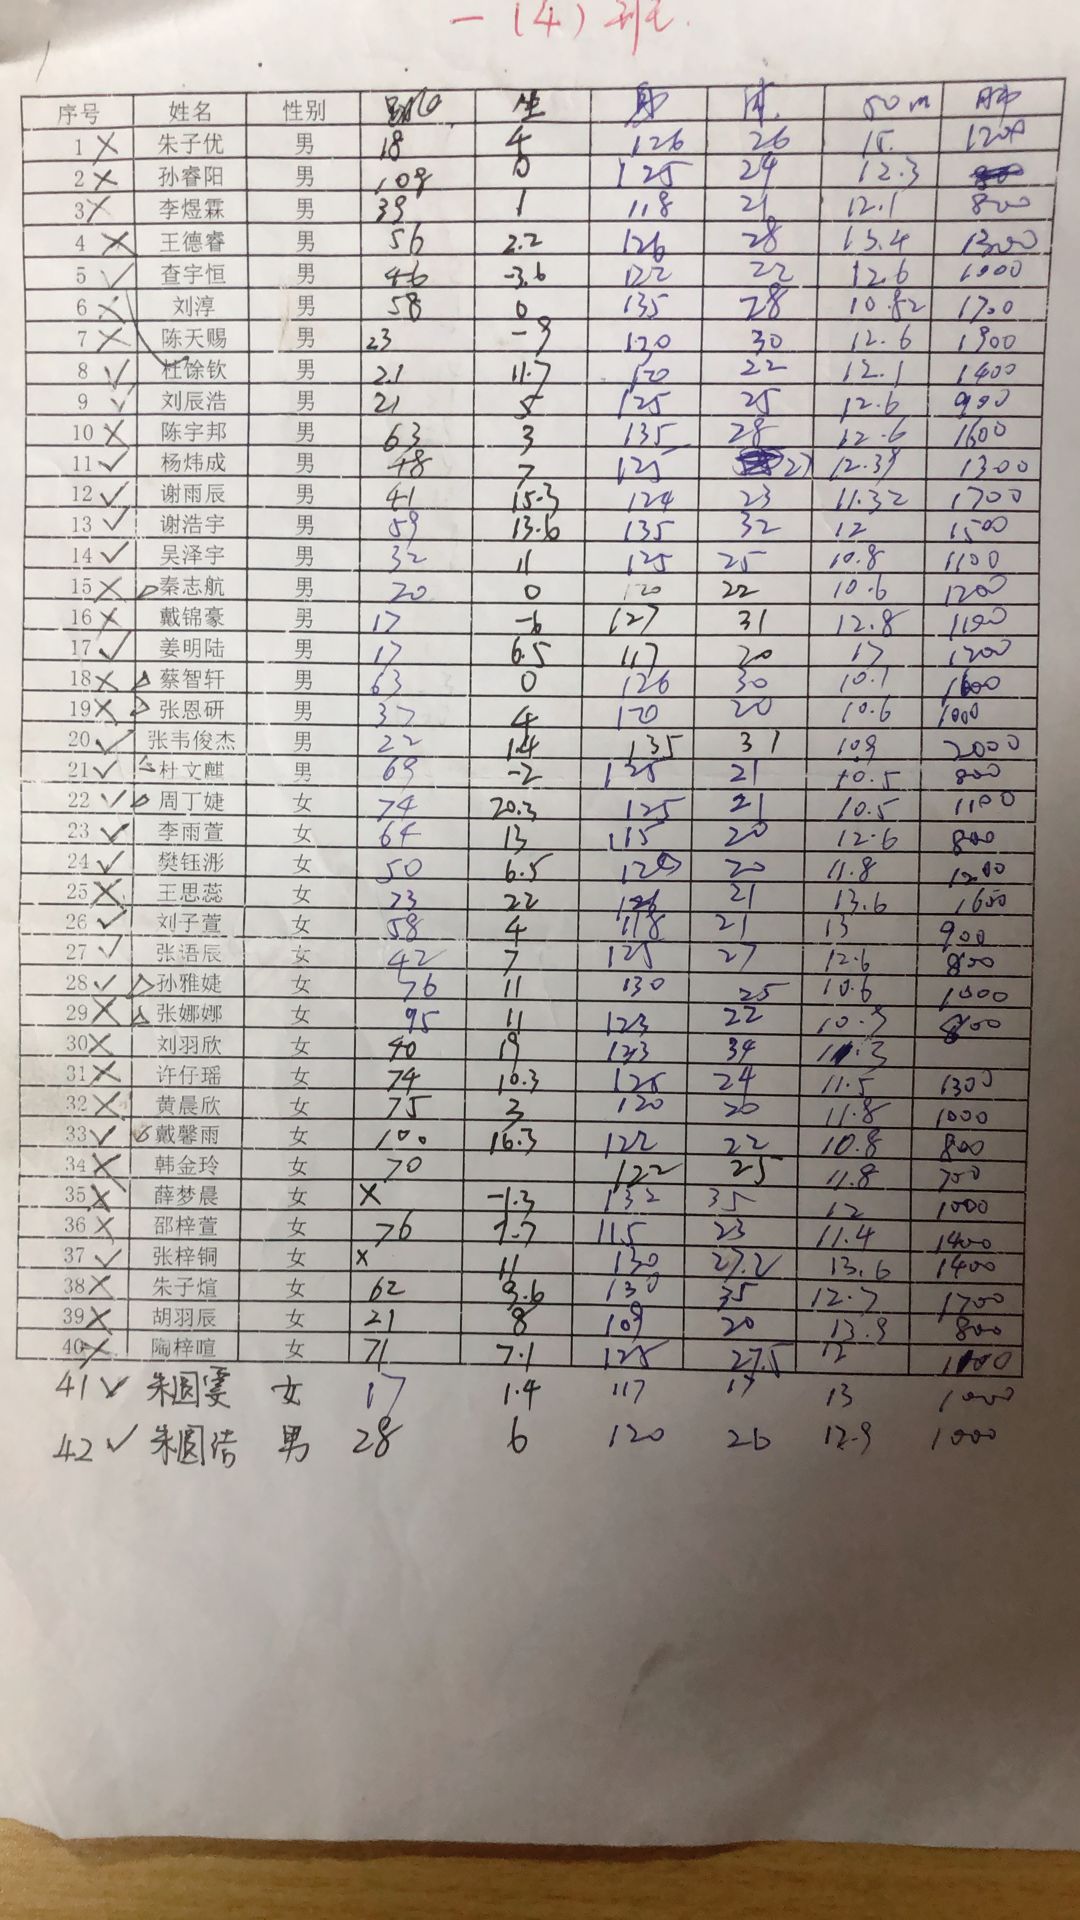 一（4）班
序号 姓名 性别 坐 身 体 50m 肺
1 × 朱子优 男 18 4 126 26 15. 1200
2 × 孙睿阳 男 109 0 125 24 12.3
3 × 李煜霖 男 39 1 118 21 12.1 800
4 × 王德睿 男 56 2.2 126 28 13.4 1300
5 ✓ 查宇恒 男 46 -3.6 122 22 12.6 1000
6 × 刘淳 男 58 0 135 28 10.82 1700
7 × 陈天赐 男 23 -9 120 30 12.6 1900
8 ✓ 杜馀钦 男 21 11.7 120 22 12.1 1400
9 ✓ 刘辰浩 男 21 5 125 25 12.6 900
10 × 陈宇邦 男 63 3 135 28 12.6 1600
11 ✓ 杨炜成 男 48 7 125 27 12.39 1300
12 ✓ 谢雨辰 男 41 15.3 124 23 11.32 1700
13 ✓ 谢浩宇 男 59 13.6 135 32 12 1500
14 ✓ 吴泽宇 男 32 11 125 25 10.8 1100
15 × △ 秦志航 男 20 0 120 22 10.6 1200
16 × 戴锦豪 男 17 -6 127 31 12.8 1100
17 ✓ 姜明陆 男 17 6.5 117 20 17 1200
18 × △ 蔡智轩 男 63 0 126 30 10.1 1600
19 × △ 张恩研 男 37 4 120 20 10.6 1000
20 ✓ 张韦俊杰 男 22 1.4 135 31 109 2000
21 ✓ △ 杜文麒 男 69 -2 125 21 10.5 800
22 ✓ △ 周丁婕 女 74 20.3 125 21 10.5 1100
23 ✓ 李雨萱 女 64 13 115 20 12.6 800
24 ✓ 樊钰浵 女 50 6.5 120 20 11.8 1200
25 × 王思蕊 女 23 22 126 21 13.6 1650
26 ✓ 刘子萱 女 58 4 118 21 13 900
27 ✓ 张语辰 女 42 7 125 27 12.6 800
28 ✓ △ 孙雅婕 女 76 11 130 25 10.6 1000
29 × △ 张娜娜 女 95 11 123 22 10.9
30 × 刘羽欣 女 40 19 123 34 11.3
31 × 许仔瑶 女 74 10.3 125 24 11.5 1300
32 × 黄晨欣 女 75 3 120 20 11.8 1000
33 ✓ △ 戴馨雨 女 100 16.3 122 22 10.8 800
34 × 韩金玲 女 70 122 25 11.8 700
35 × 薛梦晨 女 × -1.3 132 35 12 1000
36 × 邵梓萱 女 76 7.7 115 23 11.4 1400
37 ✓ 张梓铜 女 × 11 130 27.2 13.6 1400
38 × 朱子煊 女 62 9.6 130 35 12.7 1700
39 × 胡羽辰 女 21 8 109 20 13.9 800
40 × 陶梓喧 女 71 7.1 125 27.5 12 1100
41 ✓ 朱圆雯 女 17 1.4 117 17 13 1000
42 ✓ 朱圆洁 男 28 6 120 26 12.9 1000